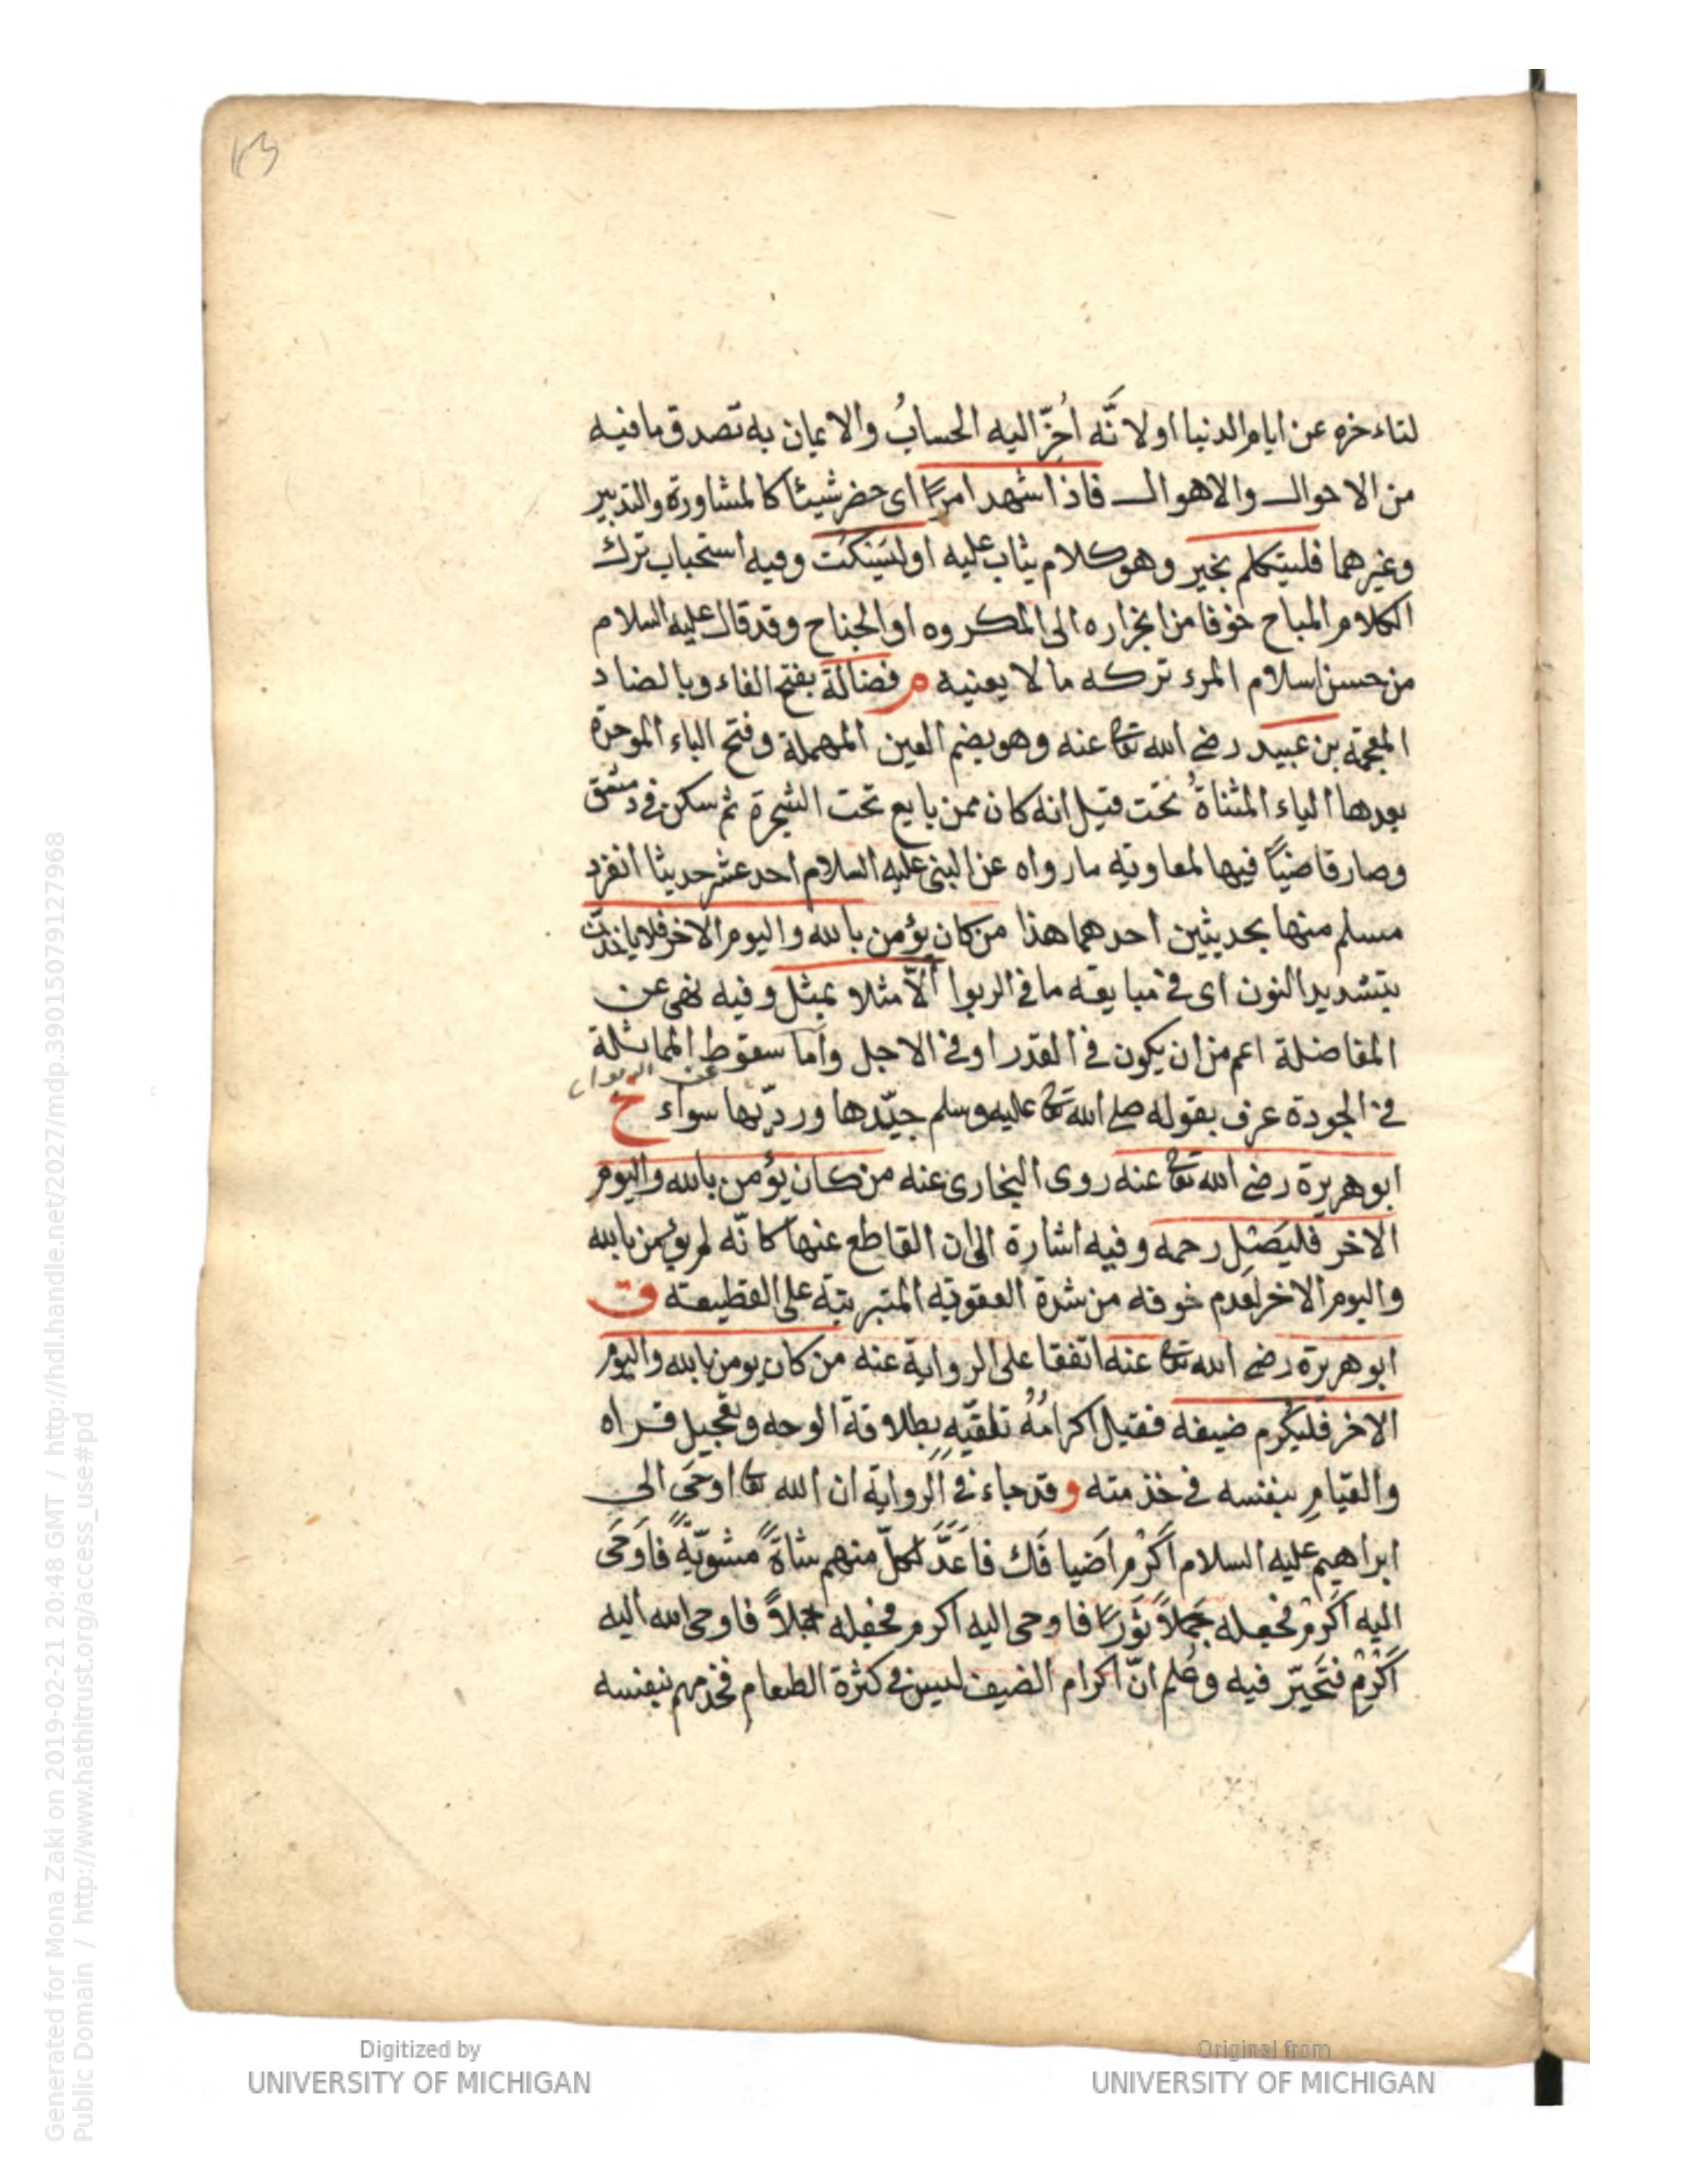 ١٣
لتاءخره عن ايام الدنيا اولا نّه اُخّر اليه الحسابُ والايمان به تصدق مافيه
من الاحوال والاهوال فاذا شهد امرًا اى حضر شيئا كالمشاورة والتدبير
وغيرهما فليتكلم بخير وهو كلام يثاب عليه او ليسكت وفيه استحباب ترك
الكلام المباح خوفا من انجراره الى المكروه او الجناح وقد قال عليه السلام
من حسن اسلام المرء تركه ما لا يعنيه م فضالة بفتح الفاء وبالضاد
المعجمة بن عبيد رضى الله تعا عنه وهو بضم العين المهملة وفتح الباء الموحدة
بعدها الياء المثناةُ تحت قيل انه كان ممن بايع تحت الشجرة ثم سكن فى دمشق
وصار قاضيًا فيها لمعاوية ما رواه عن النبى عليه السلام احد عشر حديثا انفرد
مسلم منها بحديثين احدهما هذا من كان يؤمن بالله واليوم الاخر فلا ياخذن
بتشديد النون اى فى مبايعة ما فى الربوا الاّ مثلا بمثل وفيه نهى عن
المفاضلة اعم من ان يكون فى القدر او فى الاجل واما سقوط المماثلة
عن الربوا
فى الجودة عرف بقوله صلى الله تعا عليه وسلم جيّدها ورديّها سواء خ
ابو هريرة رضى الله تعا عنه روى البخارى عنه من كان يؤمن بالله واليوم
الاخر فليَصِل رحمه وفيه اشارة الى ان القاطع عنها كانّه لم يؤمن بالله
واليوم الاخر لعدم خوفه من شدة العقوبة المتبرتية على القطيعة ق
ابو هريرة رضى الله تعا عنه اتفقا على الرواية عنه من كان يومن بالله واليوم
الاخر فليكرم ضيفه فقيل اكرامُهُ تلقيّه بطلاقة الوجه وتعجيل قراه
والقيام بنفسه فى خذمته و قد جاء فى الرواية ان الله تعا اوحَى الى
ابراهيم عليه السلام اَكْرم اَضيافَك فاَعَدَّ لكلّ منهم شاةً مشويّةً فاَوحَى
اليه اَكرِمْ فجعله جملاً ثَورًا فاوحى اليه اكرم فجعله جملاً فاوحى الله اليه
اَكْرِمْ فتَحَيّر فيه وعُلم انّ اكرام الضيف ليس فى كثرة الطعام فخدمهم بنفسه
Generated for Mona Zaki on 2019-02-21 20:48 GMT / http://hdl.handle.net/2027/mdp.39015079127968
Public Domain / http://www.hathitrust.org/access_use#pd
Digitized by
UNIVERSITY OF MICHIGAN
Original from
UNIVERSITY OF MICHIGAN